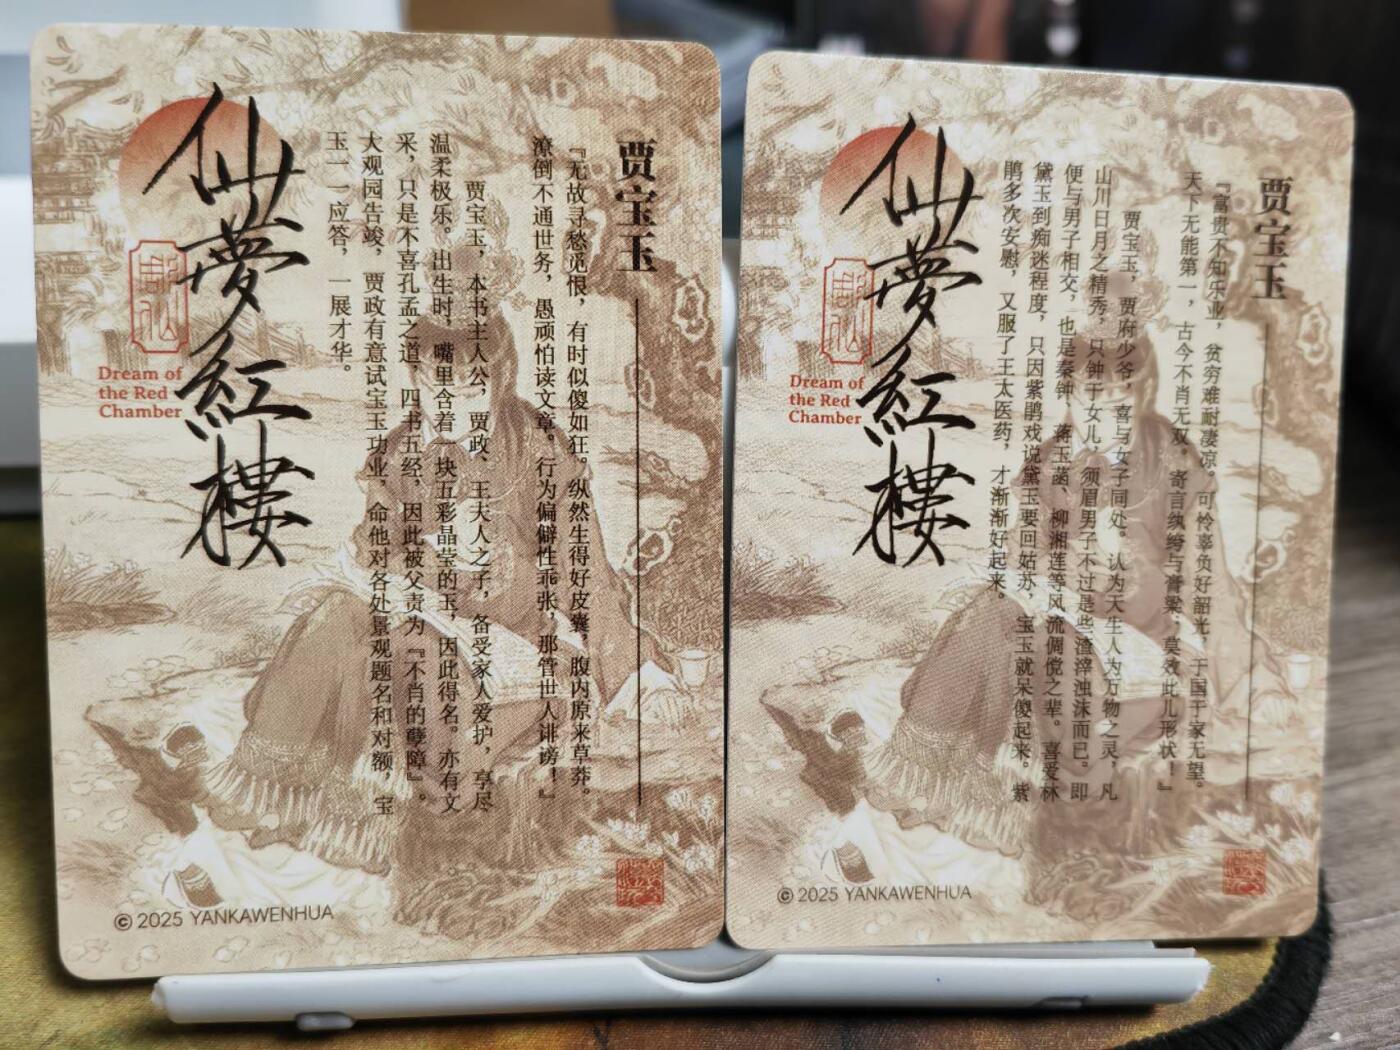 贾宝玉
『无故寻愁觅恨，有时似傻如狂。纵然生得好皮囊，腹内原来草莽。
潦倒不通世务，愚顽怕读文章。行为偏僻性乖张，那管世人诽谤！』
贾宝玉，本书主人公，贾政、王夫人之子，备受家人爱护，享尽
温柔极乐。出生时，嘴里含着一块五彩晶莹的玉，因此得名。亦有文
采，只是不喜孔孟之道，四书五经，因此被父责为『不肖的孽障』。
大观园告竣，贾政有意试宝玉功业，命他对各处景观题名和对额，宝
玉一一应答，一展才华。
仙夢紅樓
Dream of
the Red
Chamber
© 2025 YANKAWENHUA
贾宝玉
『富贵不知乐业，贫穷难耐凄凉。可怜辜负好韶光，于国于家无望。
天下无能第一，古今不肖无双。寄言纨绔与膏粱：莫效此儿形状！』
贾宝玉，贾府少爷，喜与女子同处。认为天生人为万物之灵，凡
山川日月之精秀，只钟于女儿，须眉男子不过是些渣滓浊沫而已。即
便与男子相交，也是秦钟、蒋玉菡、柳湘莲等风流倜傥之辈。喜爱林
黛玉到痴迷程度，只因紫鹃戏说黛玉要回姑苏，宝玉就呆傻起来。紫
鹃多次安慰，又服了王太医药，才渐渐好起来。
仙夢紅樓
Dream of
the Red
Chamber
© 2025 YANKAWENHUA